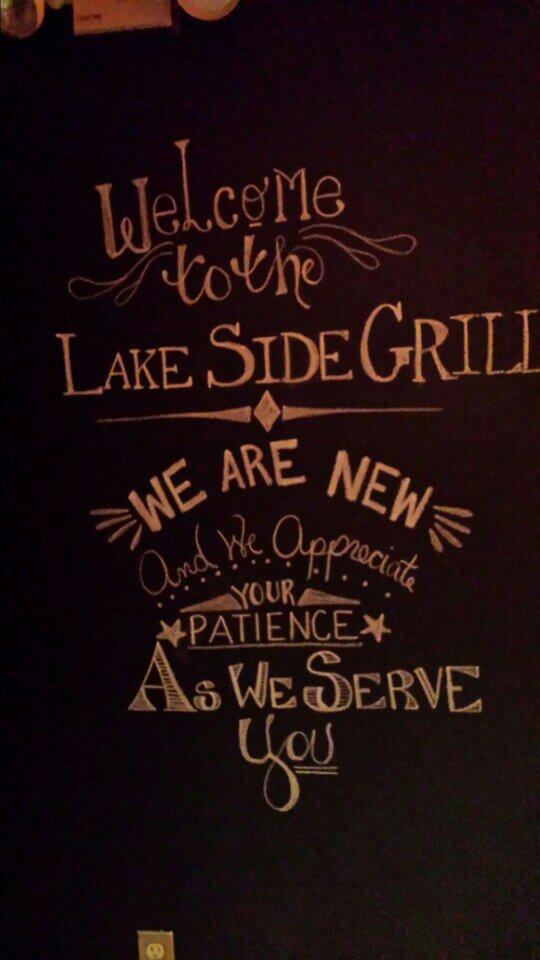 Welcome
to the
LAKE SIDE GRILL
WE ARE NEW
And We Appreciate
YOUR
PATIENCE
As WE SERVE
You